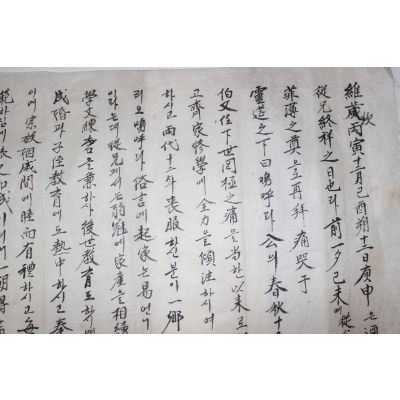 維歲次丙寅十二月己酉朔十二日庚申은
從兄終祥之日也라 前一夕己未에 從
菲薄之奠으로 再拜 痛哭于
靈筵之下曰 嗚呼라 公의 春秋十
伯父任下世罔極之痛을 當한 以來로
고 齊家修學에 全力을 傾注하시여
하시고 兩代十二年喪服하신 분이 一鄕
리오 嗚呼라 俗言에 起家는 易언니
이라는데 從兄께서는 弱冠에 家産을 相續
學文練書을 兼하 後世敎育도
成婚과 子任敎育에도 熱中하시고 奉
이에 宗族 間에 睦而有禮하시고 每
範하심에